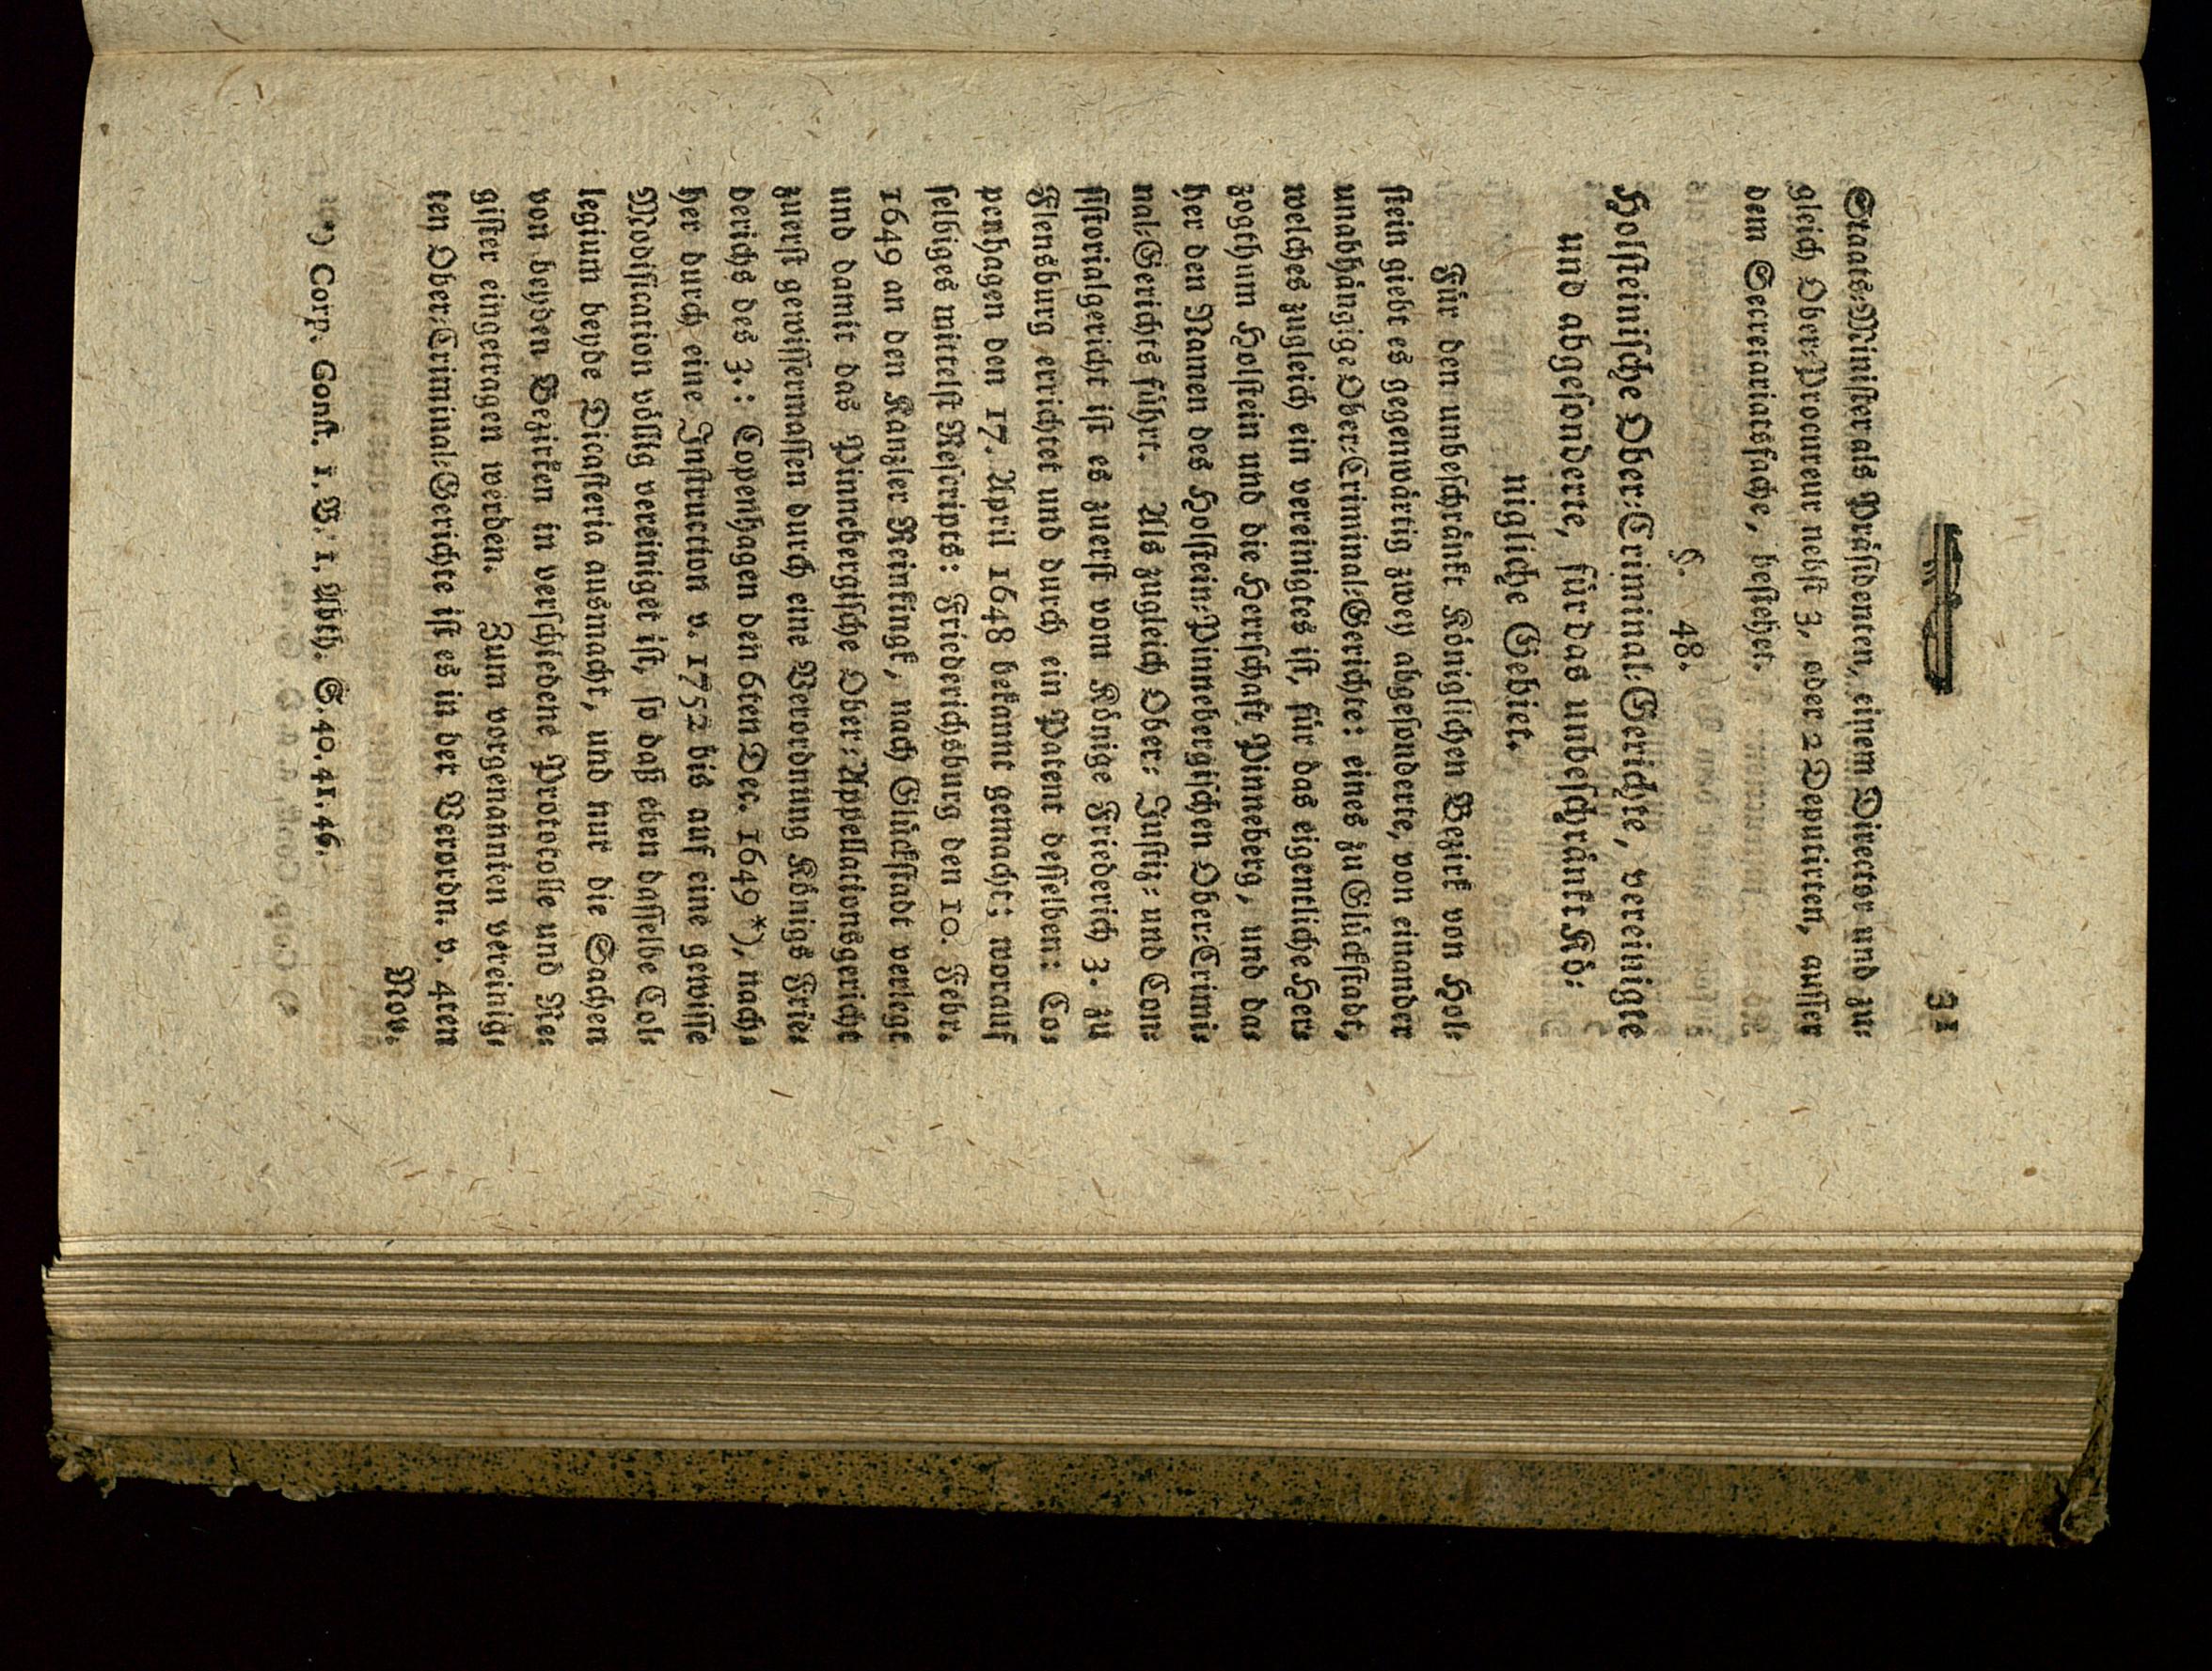 31
Staats-Minister als Präsidenten, einem Director und zu-
gleich Ober-Procureur nebst 3, oder 2 Deputirten, ausser
dem Secretariatsfache, bestehet.
§. 48.
Holsteinische Ober-Criminal-Gerichte, vereinigte
und abgesonderte, für das unbeschränkt Kö-
nigliche Gebiet.
Für den unbeschränkt Königlichen Bezirk von Hol-
stein giebt es gegenwärtig zwey abgesonderte, von einander
unabhängige Ober-Criminal-Gerichte: eines zu Glückstadt,
welches zugleich ein vereinigtes ist, für das eigentliche Her-
zogthum Holstein und die Herrschaft Pinneberg, und da-
her den Namen des Holstein-Pinnebergischen Ober-Crimi-
nal-Gerichts führt. Als zugleich Ober- Justiz- und Con-
sistorialgericht ist es zuerst vom Könige Friederich 3. zu
Flensburg errichtet und durch ein Patent desselben: Co-
penhagen den 17. April 1648 bekannt gemacht; worauf
selbiges mittelst Rescripts: Friederichsburg den 10. Febr.
1649 an den Kanzler Reinkingk, nach Glückstadt verlegt
und damit das Pinnebergische Ober-Appellationsgericht
zuerst gewissermassen durch eine Verordnung Königs Frie-
derichs des 3.: Copenhagen den 6ten Dec. 1649 *), nach-
her durch eine Instruction v. 1752 bis auf eine gewisse
Modification völlig vereiniget ist, so daß eben dasselbe Col-
legium beyde Dicasteria ausmacht, und nur die Sachen
von beyden Bezirken in verschiedene Protocolle und Re-
gister eingetragen werden. Zum vorgenannten vereinig-
ten Ober-Criminal-Gerichte ist es in der Verordn. v. 4ten
Nov.
*) Corp. Const. 1. B. 1. Abth. S. 40. 41. 46.